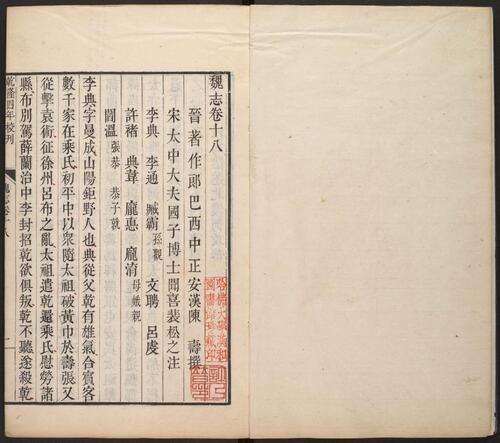 魏志卷十八
晉著作郎巴西中正安漢陳 壽撰
宋太中大夫國子博士聞喜裴松之注
李典 李通 臧霸孫觀 文聘 呂虔
許褚 典韋 龐悳 龐淯母娥親
閻溫張恭 恭子就
李典字曼成山陽鉅野人也典從父乾有雄氣合賓客
數千家在乘氏初平中以衆隨太祖破黃巾於壽張又
從擊袁術征徐州呂布之亂太祖遣乾還乘氏慰勞諸
縣布別駕薛蘭治中李封招乾欲俱叛乾不聽遂殺乾
乾隆四年校刊
魏志卷十八
一
哈佛大學漢和圖書館珍藏印